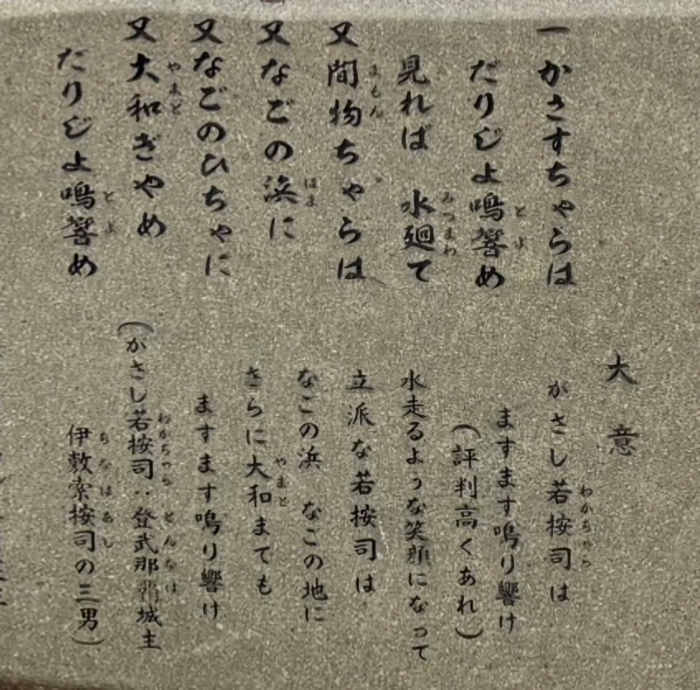 一 かさすちゃらは
だりじよ鳴響め
見れば 水廻て
又 聞物ちゃらは
又 なごの浜に
又 なごのひちゃに
又 大和ぎやめ
だりじよ鳴響め
大意
がさし若按司は
ますます鳴り響け
(評判高くあれ)
水走るような笑顔になって
立派な若按司は
なごの浜 なごの地に
さらに大和までも
ますます鳴り響け
(がさし若按司:登武那 城主
伊敷索按司の三男)